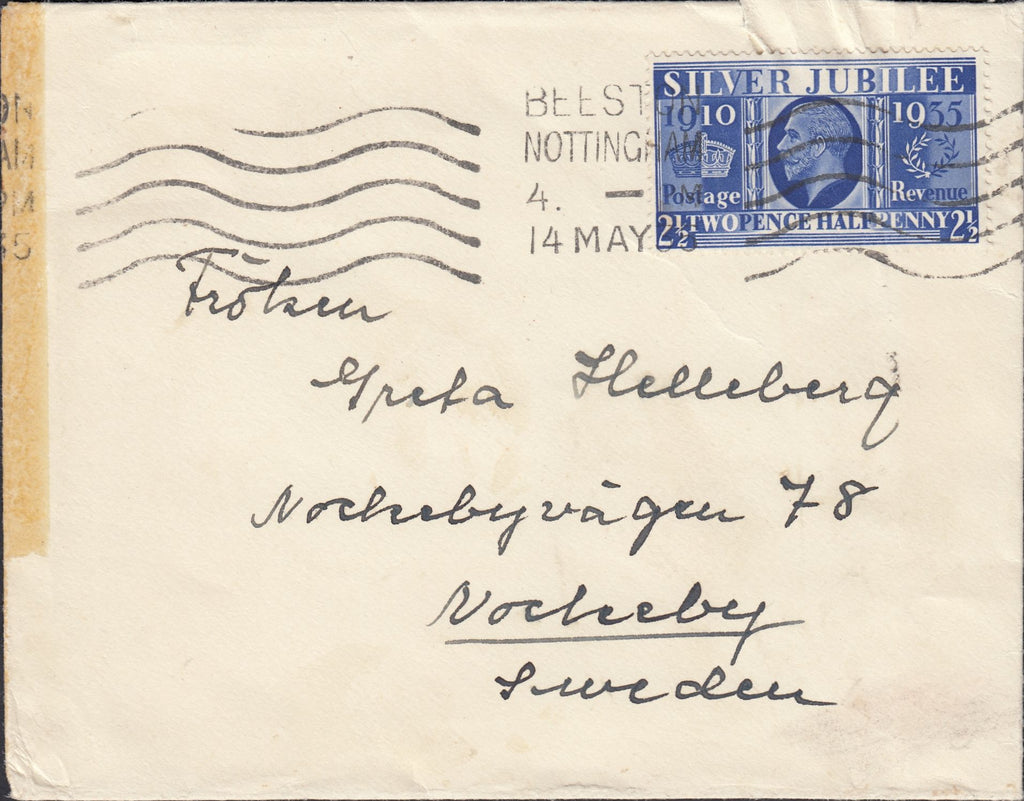 ON
AM
PM
35
BEESTON
NOTTINGHAM
4. — PM
14 MAY 35
SILVER JUBILEE
1910 1935
Postage Revenue
2½ TWOPENCE HALFPENNY 2½
Fröken
Greta Helleberg
Nockebyvägen 78
Nockeby
Sweden